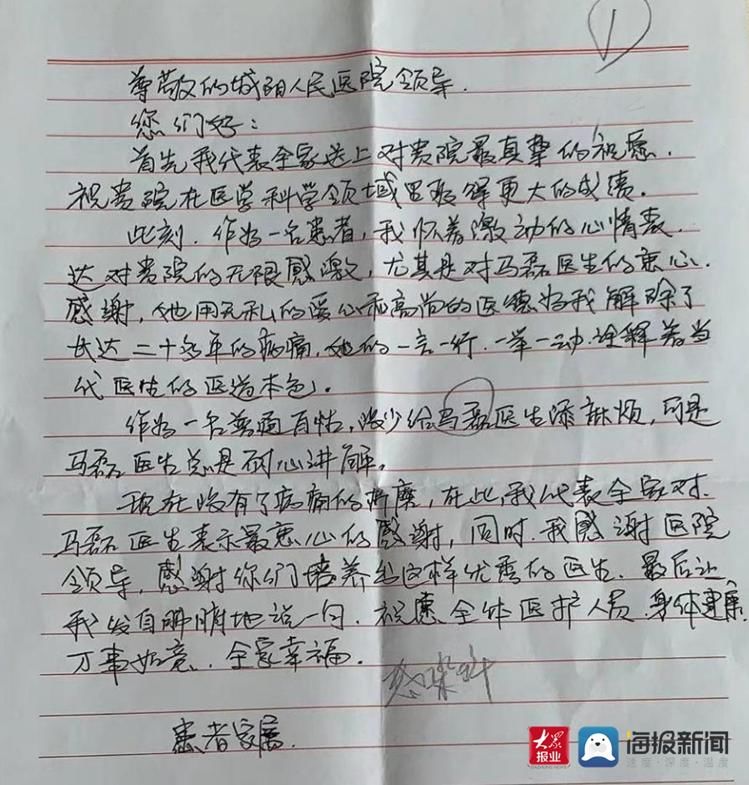 1
尊敬的城阳人民医院领导.
您们好:
首先我代表全家送上对贵院最真挚的祝愿.
祝贵院在医学科学领域里取得更大的成绩.
此刻.作为一名患者,我怀着激动的心情表
达对贵院的无限感激,尤其是对马磊医生的衷心.
感谢,他用无私的爱心和高尚的医德为我解除了
长达二十多年的病痛,他的一言一行.一举一动.诠释着当
代医生的医道本色.
作为一名普通百姓,没少给马磊医生添麻烦,可是
马磊医生总是耐心讲解.
现在没有了病痛的折磨,在此,我代表全家对.
马磊医生表示最衷心的感谢,同时.我感谢医院
领导,感谢你们培养出这样优秀的医生.最后让
我发自肺腑地说一句.祝愿全体医护人员.身体健康
万事如意.全家幸福.
患者家属.
大众报业
DAZHONG NEWS
海报新闻
速度·深度·温度